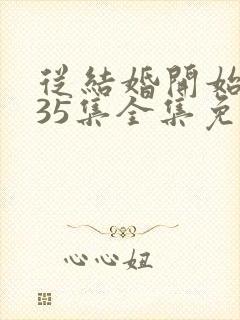 從結婚開始
35集全集免
心心妞